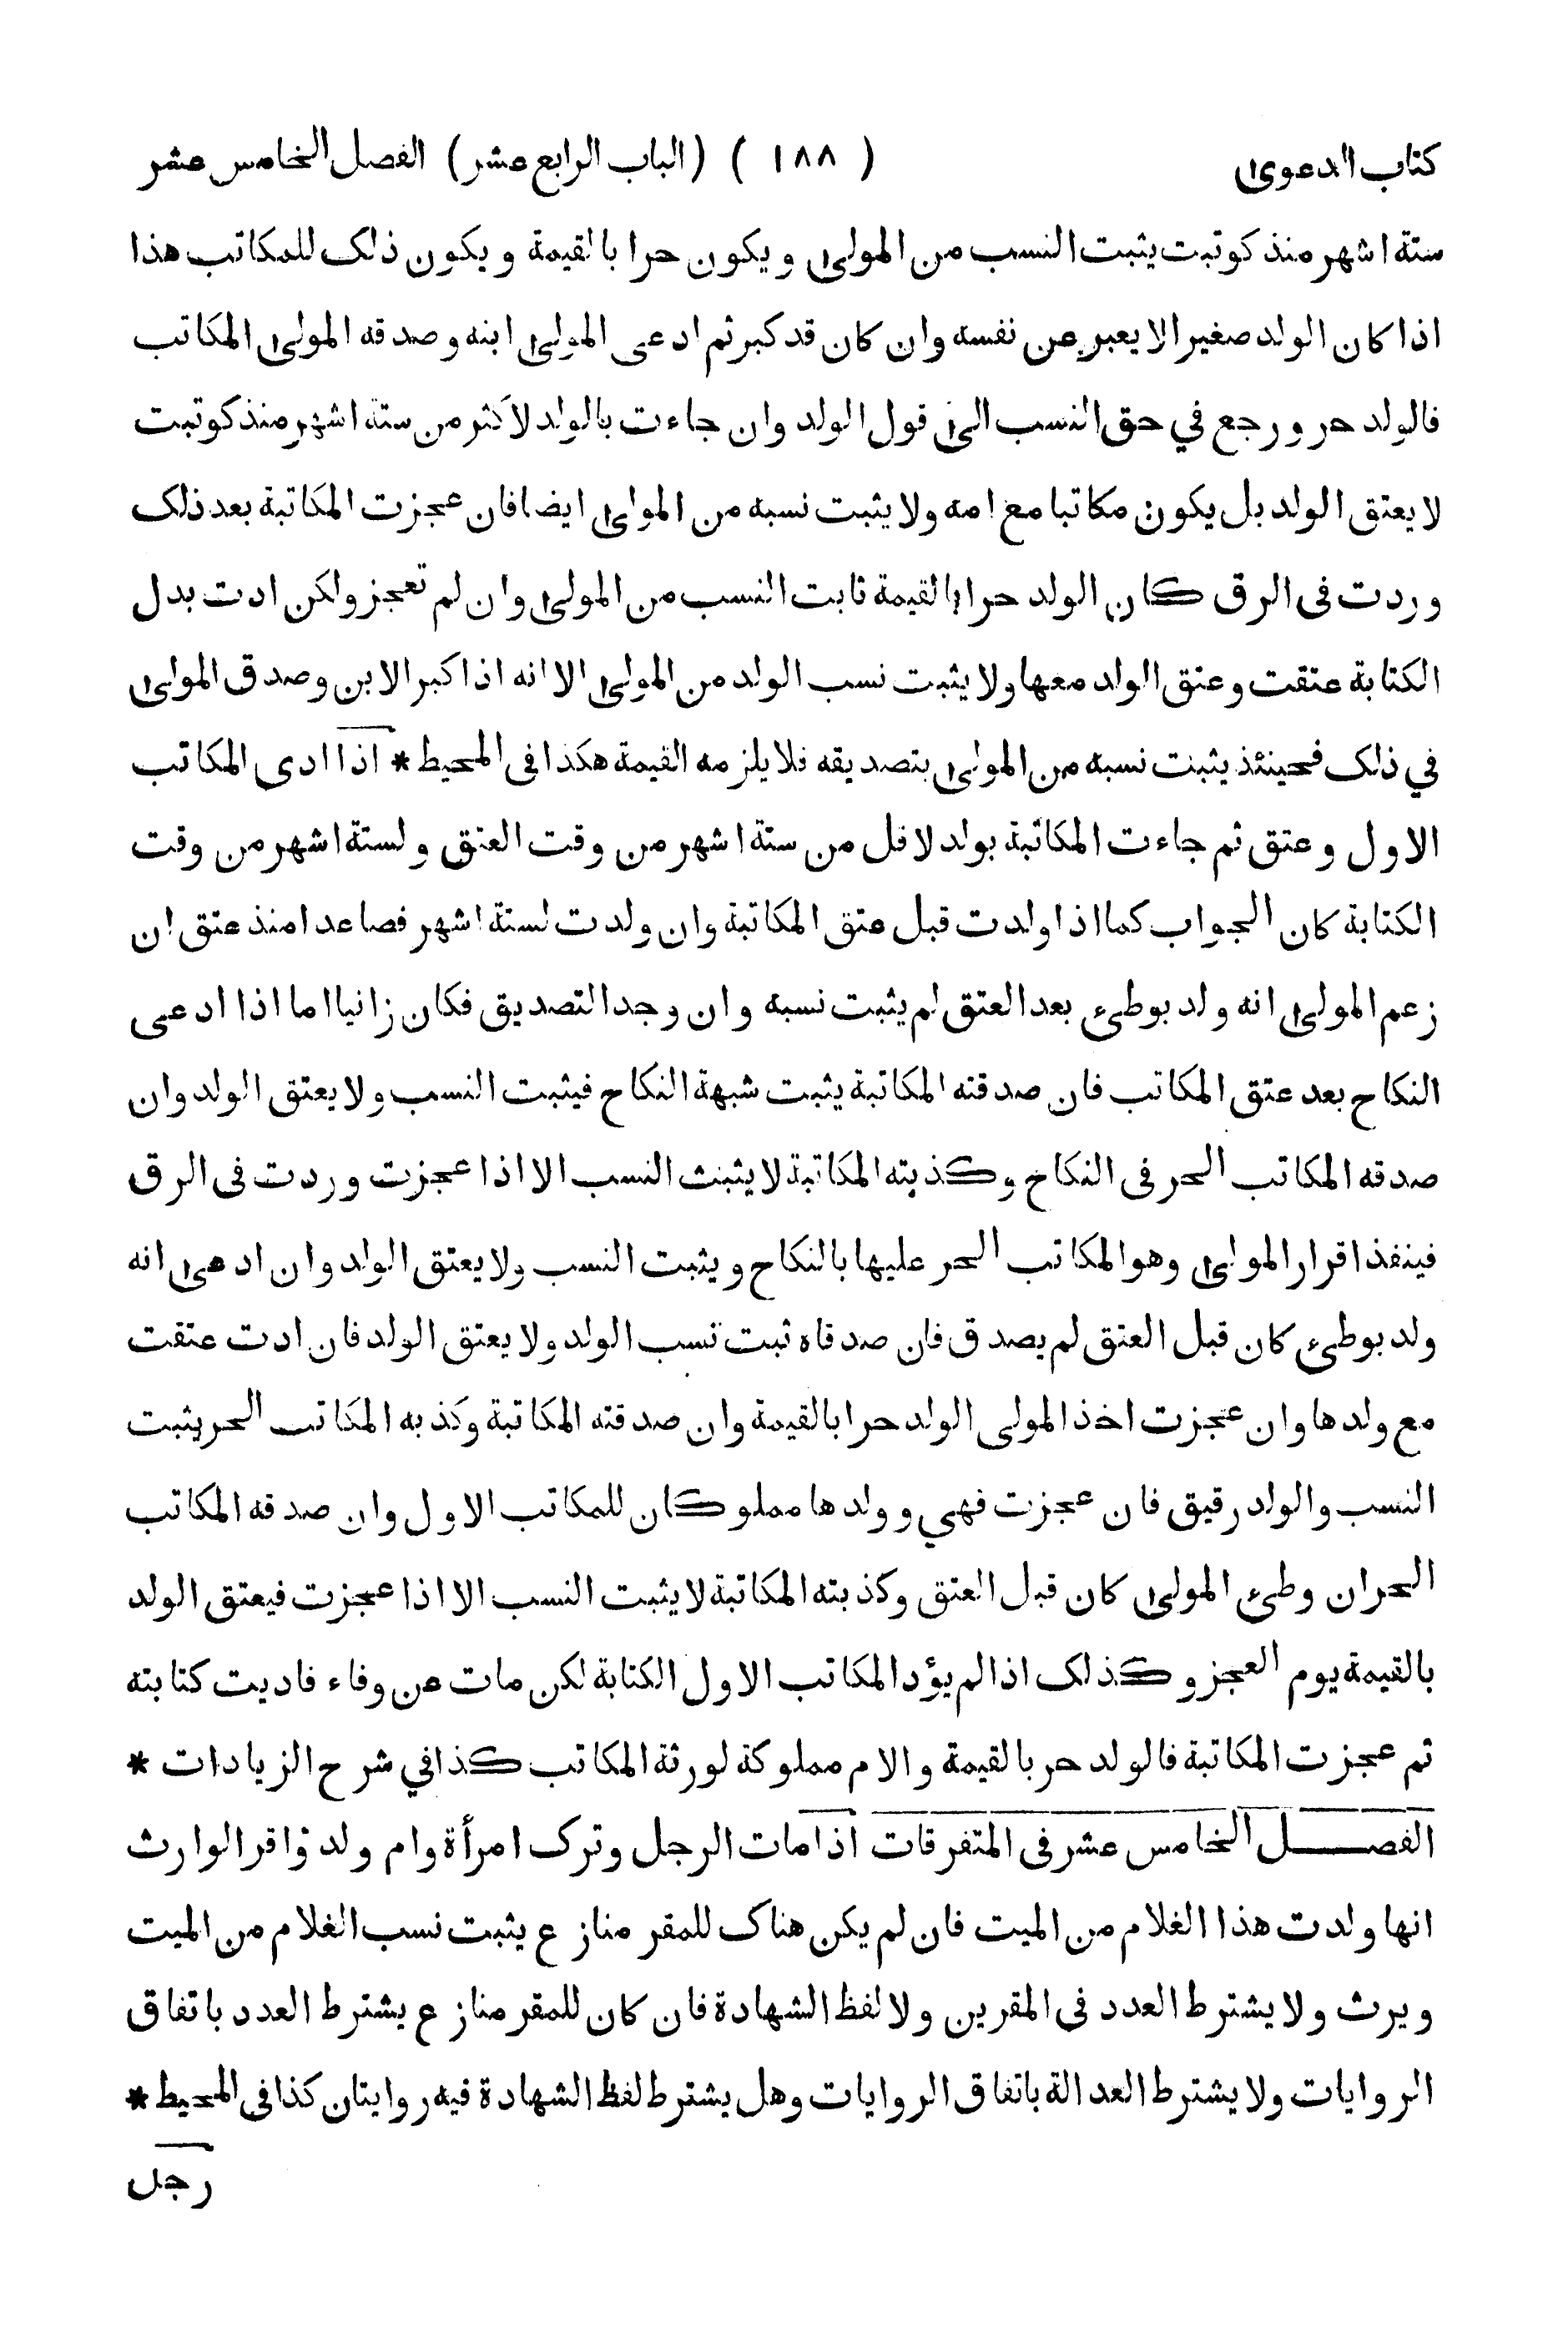 كتاب الدعوى ( ١٨٨ ) (الباب الرابع عشر) الفصل الخامس عشر
ستة اشهر منذ كوتبت يثبت النسب من المولى ويكون حرا بالقيمة ويكون ذلك للمكاتب هذا
اذا كان الولد صغيرا لا يعبر عن نفسه وان كان قد كبر ثم ادعى المولى ابنه وصدقه المولى المكاتب
فالولد حر ورجع في حق النسب الى قول الولد وان جاءت بالولد لاكثر من ستة اشهر منذ كوتبت
لا يعتق الولد بل يكون مكاتبا مع امه ولا يثبت نسبه من المولى ايضا فان عجزت المكاتبة بعد ذلك
وردت فى الرق كان الولد حرا بالقيمة ثابت النسب من المولى وان لم تعجز ولكن ادت بدل
الكتابة عتقت وعتق الولد معها ولا يثبت نسب الولد من المولى الا انه اذا كبر الابن وصدق المولى
في ذلك فحينئذ يثبت نسبه من المولى بتصديقه فلا يلزمه القيمة هكذا فى المحيط * اذا ادى المكاتب
الاول وعتق ثم جاءت المكاتبة بولد لاقل من ستة اشهر من وقت العتق ولستة اشهر من وقت
الكتابة كان الجواب كما اذا ولدت قبل عتق المكاتبة وان ولدت لستة اشهر فصاعدا منذ عتق ان
زعم المولى انه ولد بوطىء بعد العتق لم يثبت نسبه وان وجد التصديق فكان زانيا اما اذا ادعى
النكاح بعد عتق المكاتب فان صدقته المكاتبة يثبت شبهة النكاح فيثبت النسب ولا يعتق الولد وان
صدقه المكاتب الحر فى النكاح وكذبته المكاتبة لا يثبت النسب الا اذا عجزت وردت فى الرق
فينفذ اقرار المولى وهو المكاتب الحر عليها بالنكاح ويثبت النسب ولا يعتق الولد وان ادعى انه
ولد بوطىء كان قبل العتق لم يصدق فان صدقاه ثبت نسب الولد ولا يعتق الولد فان ادت عتقت
مع ولدها وان عجزت اخذ المولى الولد حرا بالقيمة وان صدقته المكاتبة وكذبه المكاتب الحر يثبت
النسب والولد رقيق فان عجزت فهي وولدها مملوكان للمكاتب الاول وان صدقه المكاتب
الحر ان وطىء المولى كان قبل العتق وكذبته المكاتبة لا يثبت النسب الا اذا عجزت فيعتق الولد
بالقيمة يوم العجز وكذلك اذا لم يؤد المكاتب الاول الكتابة لكن مات عن وفاء فاديت كتابته
ثم عجزت المكاتبة فالولد حر بالقيمة والام مملوكة لورثة المكاتب كذا في شرح الزيادات *
الفصل الخامس عشر فى المتفرقات اذا مات الرجل وترك امرأة وام ولد فاقر الوارث
انها ولدت هذا الغلام من الميت فان لم يكن هناك للمقر منازع يثبت نسب الغلام من الميت
ويرث ولا يشترط العدد فى المقرين ولا لفظ الشهادة فان كان للمقر منازع يشترط العدد باتفاق
الروايات ولا يشترط العدالة باتفاق الروايات وهل يشترط لفظ الشهادة فيه روايتان كذا فى المحيط *
رجل